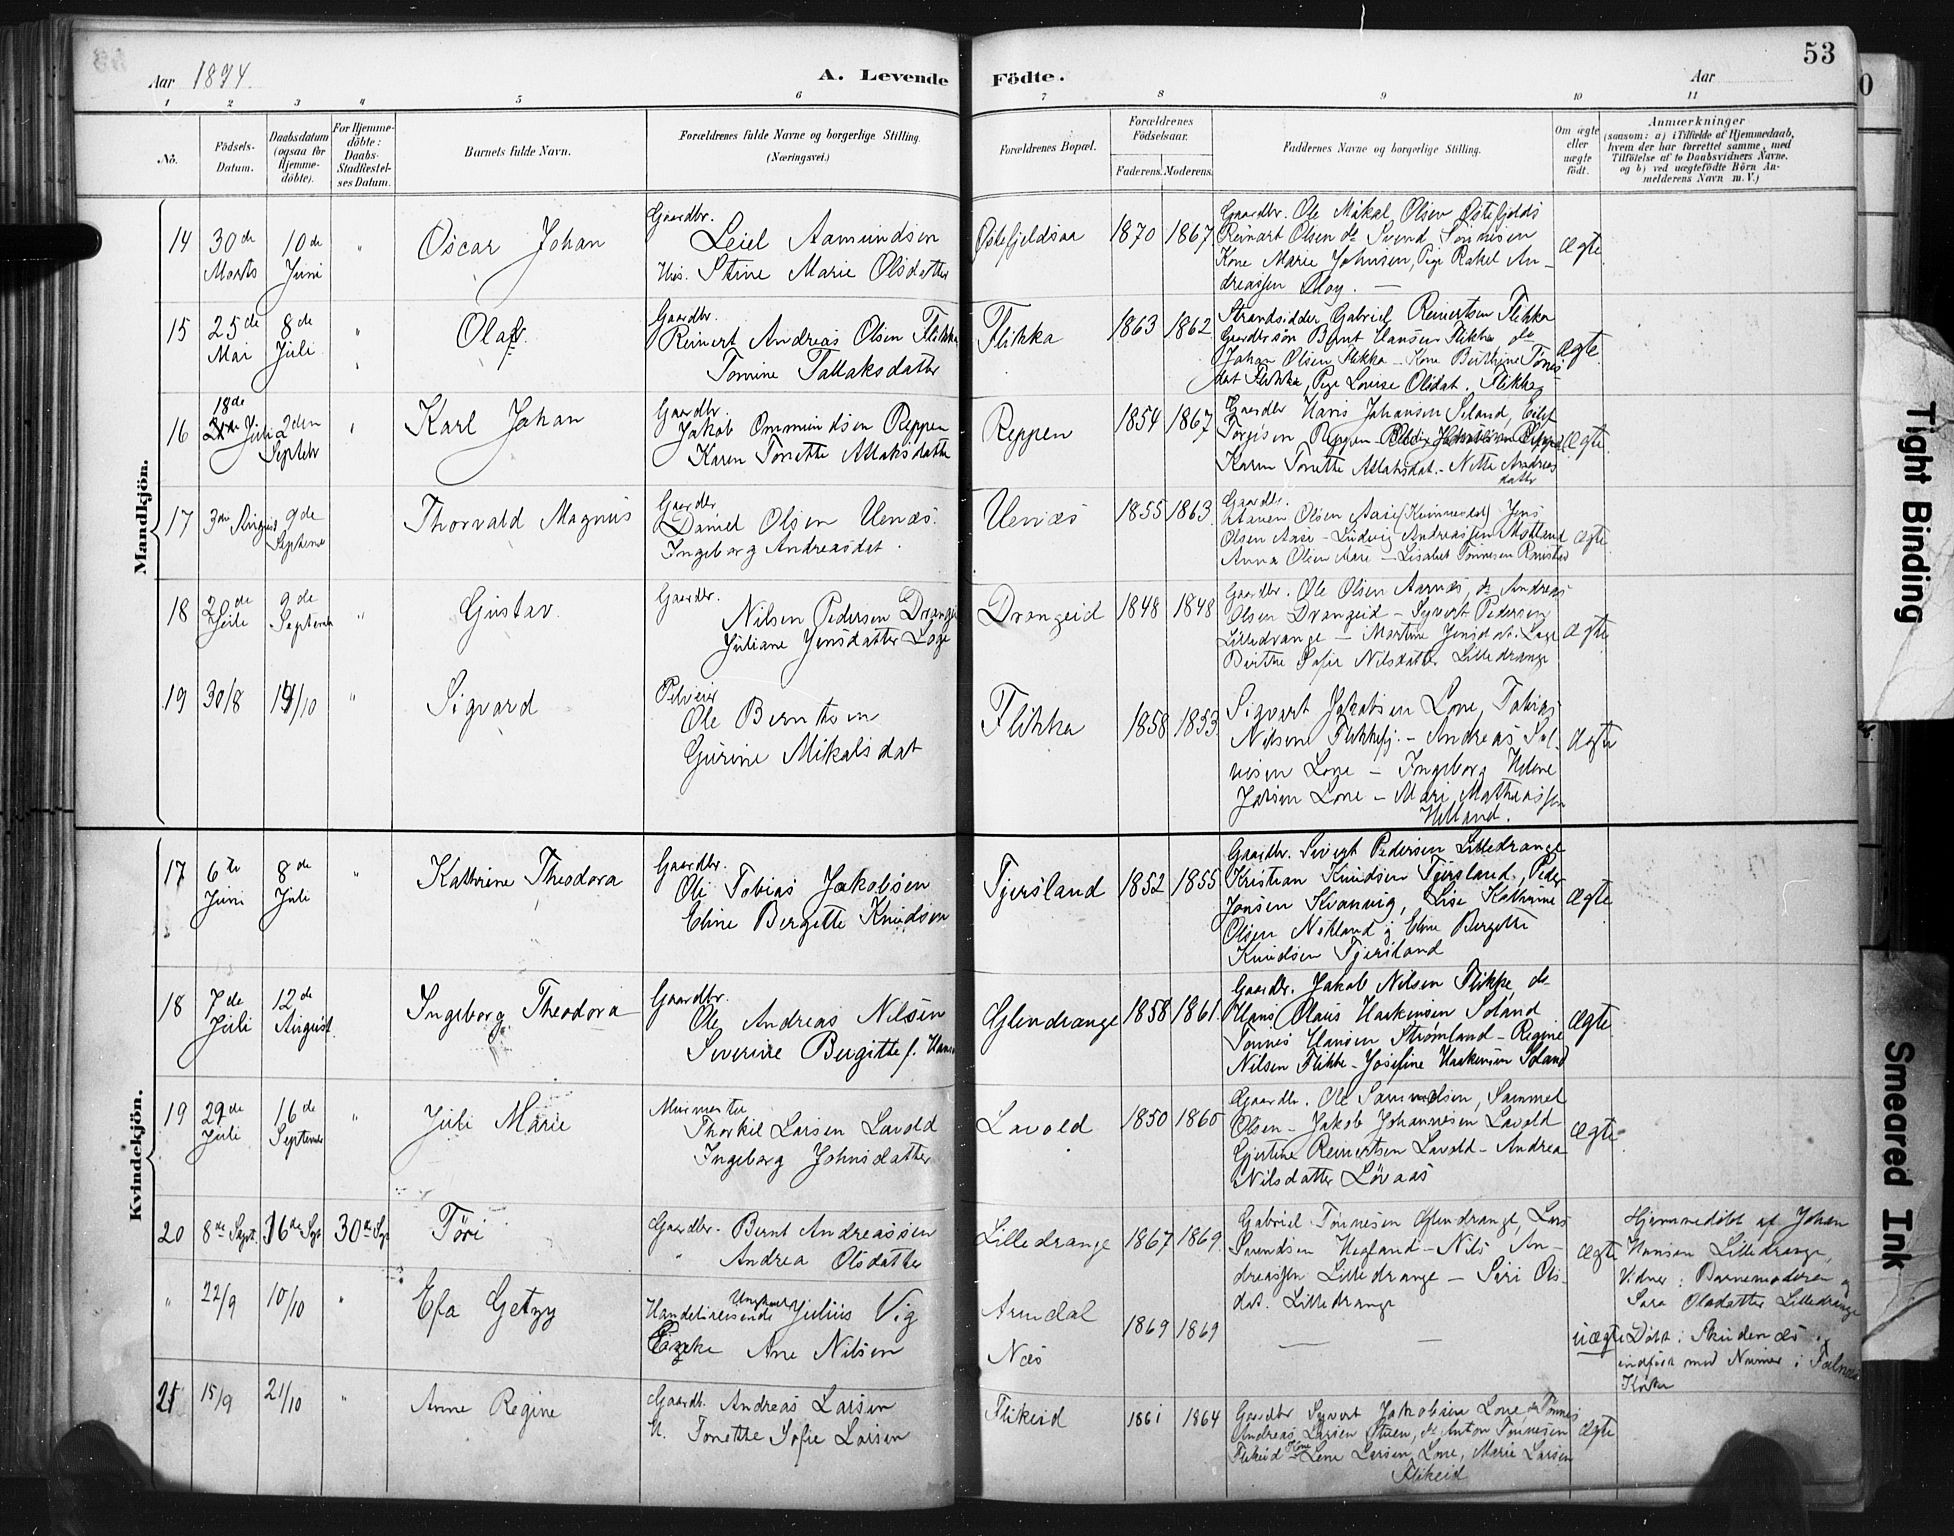 53
Aar 1894.
A. Levende Födte.
Aar
1 2 3 4 5 6 7 8 9 10 11
No.
Födsels-Datum.
Daabsdatum (ogsaa for Hjemme-döbte).
For Hjemme-döbte: Daabs-Stadfæstelses Datum.
Barnets fulde Navn.
Forældrenes fulde Navne og borgerlige Stilling.
(Næringsvei.)
Forældrenes Bopæl.
Forældrenes Födselsaar.
Faderens. Moderens.
Faddernes Navne og borgerlige Stilling.
Om ægte eller uægte født.
Anmærkninger
(saasom: a) i Tilfælde af Hjemmedaab, hvem der har forrettet samme, med Tilföielse af to Daabsvidners Navne, og b) ved uægtefödte Börn Anmelderens Navn m. V.)
Mandkjön.
14
30de Marts
10de Juni
"
Oscar Johan
Gaardbr.
Leiel Aamundsen
Hus. Stine Marie Olsdatter
Østefjeldsaa
1870 1867
Gaardbr. Ole Mikal Olsen Østefjelds
Reinart Olsen do Svend Tønnesen
Kone Marie Johnsen, Pige Rakel An-
dreassen
ægte
15
25de Mai
8de Juli
"
Olaf.
Gaardbr.
Reinert Andreas Olsen Flikka
Tomine Tallaksdatter
Flikka
1863 1862
Strandsidder Gabriel Reinertsen Flikka
Gaardbrsøn Bernt Hansen Flikka do
Johan Olsen Flikka - Kone Berthine Tønnes
dat Flikka, Pige Lovise Olsdat. Flikka
ægte
16
18de Juli
2den Septebr
Karl Johan
Gaardbr.
Jakob Ommundsen Reppen
Karen Tonette Atlaksdatter
Reppen
1854 1867
Gaardbr Hans Johansen Seland,
Torgisen Reppen
Karen Tonette Atlaksdat - Nette Andreas
datter
ægte
17
3die August
9de Septembr
Thorvald Magnus
Gaardbr.
Daniel Olsen Uenæs.
Ingeborg Andreasdat.
Uenæs
1855 1863
Gaardbr.
Olsen Aase Jens
Olsen Aase - Ludvig Andreassen Motland
Anna Olsen Aase - Lisabet Tønnesen
ægte
18
20de Juli
9de Septembr
"
Gustav.
Gaardbr.
Nilsen Pedersen Drangeid
Juliane Jensdatter Loge
Drangeid
1848 1848
Gaardbr. Ole Olsen Aarnæs, do Andreas
Olsen Drangeid - Syvert Pedersen
Lilledrange - Martine Jensdat. Loge
Berthe Sofie Nilsdatter Lilledrange
ægte
19
30/8
14/10
"
Sigvard
Ole Berntsen
Gurine Mikalsdat
Flikka
1858 1853
Sigvert Jakobsen Lone, Tobias
Nilsen Flikkefj. - Andreas Sal-
vesen Lone - Ingeborg Helene
Jakobsen Lone - Mari Mathiassen
Helland.
ægte
Kvindekjön.
17
6te Juni
8de Juli
"
Kathrine Theodora
Gaardbr.
Ole Tobias Jakobsen
Eline Bergitte Knudsen
Tjersland
1852 1855
Gaardbr. Sivert Pedersen Lilledrange
Kristian Knudsen Tjersland, Peder
Jonsen Kvanvig, Lise Kathrine
Olsen Netland og Eline Bergitte
Knudsen Tjersland
ægte
18
7de Juli
12de August
Ingeborg Theodora
Gaardbr.
Ole Andreas Nilsen
Severine Bergitte f. Hans
Glendrange
1858 1861
Gaardbr. Jakob Nilsen Flikke do
Hans Olaus Haakensen Soland
Tønnes Hansen Strømland - Regine
Nilsen Flikke - Josefine Haakensen Soland
ægte
19
29de Juli
16de September
"
Juli Marie
Murmester
Thorkil Larsen Lavold
Ingeborg Johnsdatter
Lavold
1850 1860
Gaardbr. Ole Samuelsen, Sammel
Olsen - Jakob Johannesen Lavold
Gjertine Reinertsen Lavold - Andrea
Nilsdatter Løvaas
ægte
20
8de Sept.
16de Sept
30de Sept
Töri
Gaardbr. Bernt Andreassen
" Andrea Olsdatter
Lilledrange
1867 1869
Gabriel Tønnesen Glendrange, Lars
Svendsen Hegland - Nils An-
dreassen Lilledrange - Siri Ols-
dat. Lilledrange
ægte
Hjemmedöbt af Johan
Hansen Lilledrange,
Vidner: Barnemoderen og
Sara Olsdatter Lilledrange
"
22/9
10/10
"
Efa Getzy
Handelsreisende Ungkarl Julius Vig
Enke Ane Nilsen
Arendal
Næs
1869 1869
— —
uægte
Döbt: Skudenæs og
indført med Numer i Falnæs
Kirke
21
15/9
21/10
"
Anne Regine
Gaardb. Andreas Larsen
H. Tonette Sofie Larsen
Flikeid
1861 1864
Gaardbr Syvert Jakobsen Lone, do Tønnes
Andreas Larsen Stuen, do Anton Tønnesen
Flikeid Kone Lene Larsen Lone, Marie Larsen
Flikeid
ægte
Tight Binding
Smeared Ink